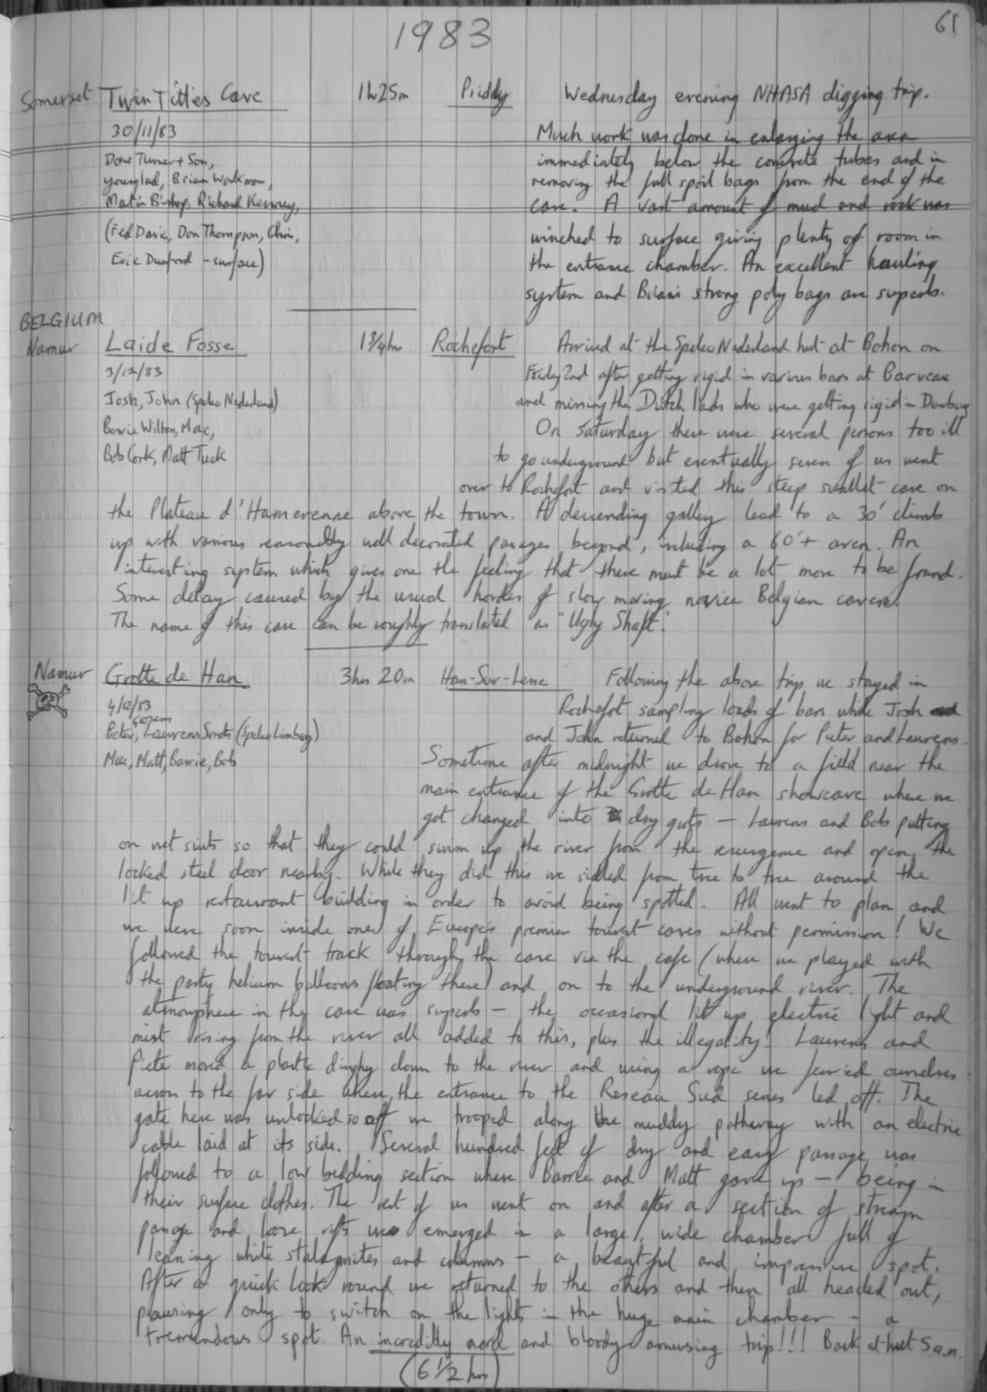 1983
61
Somerset Twin Titties Cave 1h 25m Priddy Wednesday evening NHASA digging trip.
30/11/83 Much work was done in enlarging the area
Dave Turner + Son, immediately below the concrete tubes and in
young lad, Brian Workman, removing the full spoil bags from the end of the
Martin Bishop, Richard Kenney, cave. A vast amount of mud and rock was
(Fed Davie, Don Thompson, Chris, winched to surface giving plenty of room in
Eric Dunford - surface) the entrance chamber. An excellent hauling
system and Brian's strong poly bags are superb.
BELGIUM
Namur Laide Fosse 1¾hrs Rochefort Arrived at the Speleo Nederland hut at Bohon on
3/12/83 Friday 2nd after getting rigid in various bars at Barveau
Josh, John (Speleo Nederland) and missing the Dutch lads who were getting rigid in Durbuy
Barrie Wilton, Mac, On Saturday there were several persons too ill
Bob Cork, Matt Tuck to go underground but eventually seven of us went
over to Rochefort and visited this steep swallet cave on
the Plateau d'Hamerenne above the town. A descending gallery lead to a 30' climb
up with various reasonably well decorated passages beyond, including a 60'+ aven. An
interesting system which gives one the feeling that there must be a lot more to be found.
Some delay caused by the usual hordes of slow moving novice Belgian cavers.
The name of this cave can be roughly translated as "Ugly Shaft".
Namur Grotte de Han 3hrs 20m Han-Sur-Lesse Following the above trip we stayed in
4/12/83 Rochefort sampling loads of bars while Josh
Peter, Laurens Smets (Speleo Limburg) and John returned to Bohon for Peter and Laurens.
Mac, Matt, Barrie, Bob Sometime after midnight we drove to a field near the
main entrance of the Grotte de Han showcave where we
got changed into dry grots — Laurens and Bob putting
on wet suits so that they could swim up the river from the resurgence and open the
locked steel door nearby. While they did this we sidled from tree to tree around the
lit up restaurant building in order to avoid being spotted. All went to plan and
we were soon inside one of Europe's premier tourist caves without permission! We
followed the tourist track through the cave via the cafe (where we played with
the party helium balloons floating there) and on to the underground river. The
atmosphere in the cave was superb — the occasional lit up electric light and
mist rising from the river all added to this, plus the illegality! Laurens and
Pete moved a plastic dinghy down to the river and using a rope we ferried ourselves
across to the far side where the entrance to the Reseau Sud series led off. The
gate here was unlocked so off we trooped along the muddy pathway with an electric
cable laid at its side. Several hundred feet of dry and easy passage was
followed to a low bedding section where Barrie and Matt gave up — being in
their surface clothes. The rest of us went on and after a section of stream
passage and loose rifts we emerged in a large, wide chamber full of
leaning white stalagmites and columns — a beautiful and impressive spot.
After a quick look round we returned to the others and then all headed out,
pausing only to switch on the lights in the huge main chamber — a
tremendous spot. An incredibly good and bloody amusing trip!!! Back at hut 5 a.m.
(6½ hrs)